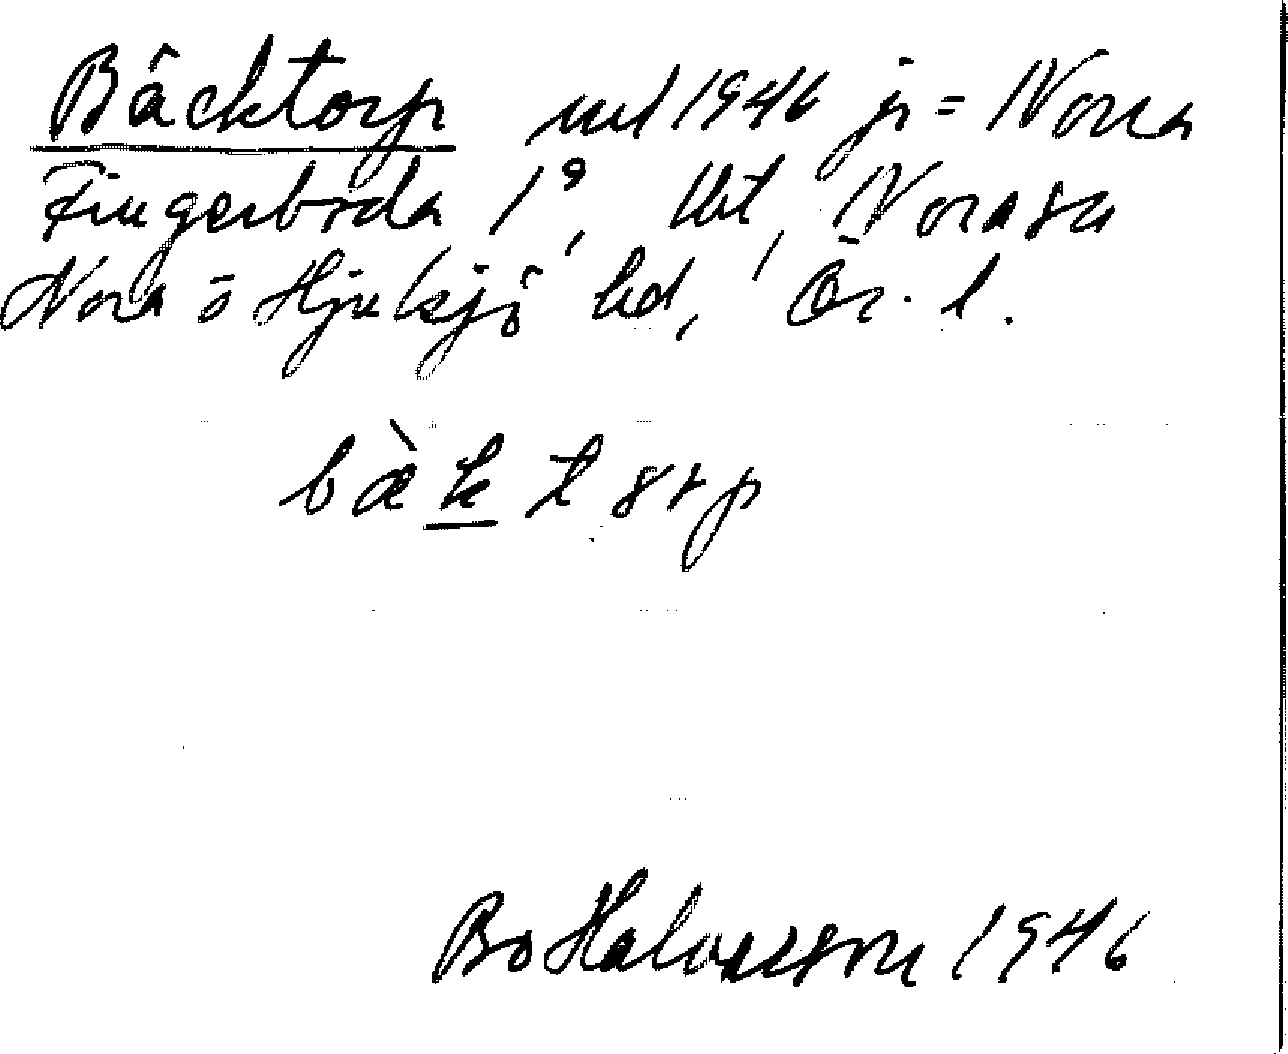 Bäcktorp uul 1946 jr = Norra
Fingerboda 1⁹, lht, Norasn
Nora o Hjulsjö hd, Ör. l.
bæ̀k̲tɞrp
Bo Halvarsson 1946